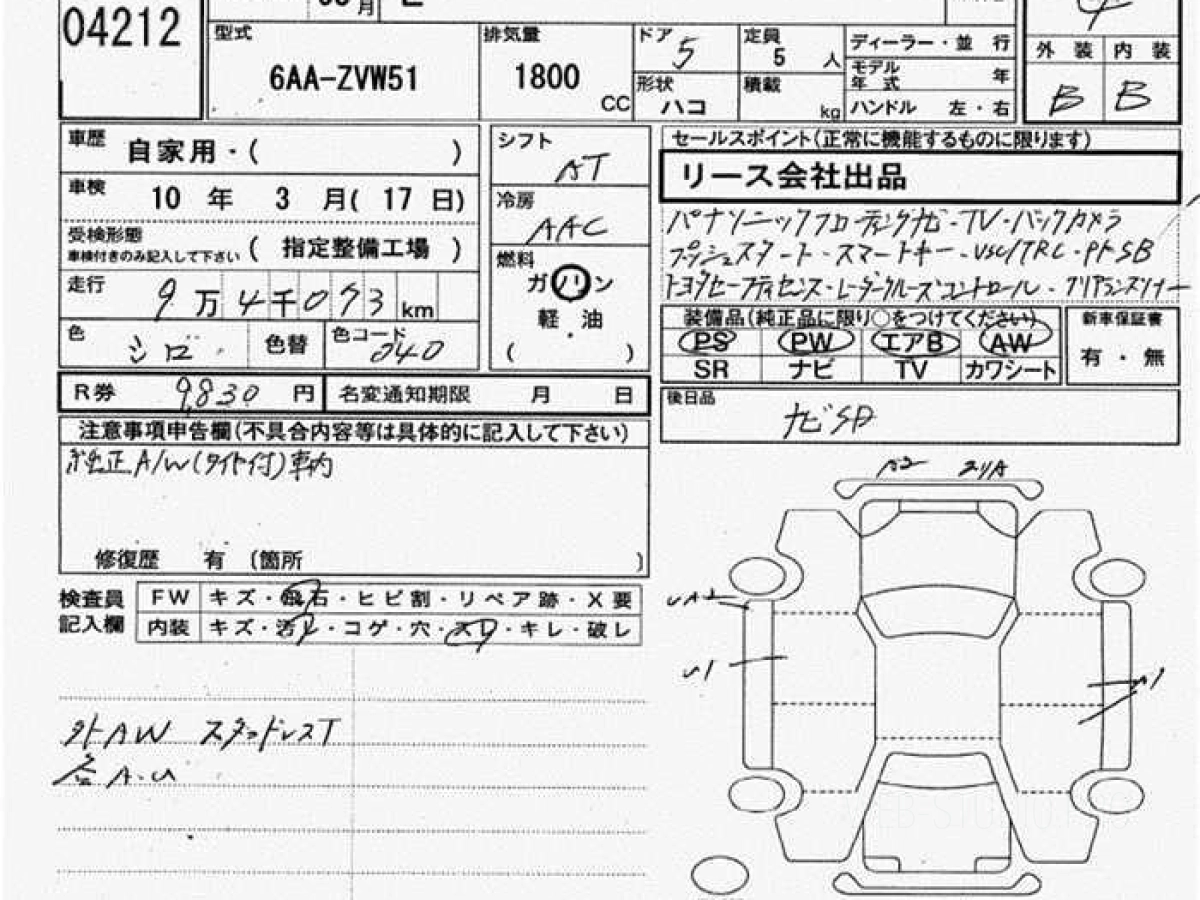 04212
月
型式 6AA-ZVW51
排気量 1800 CC
ドア 5
定員 5 人
形状 ハコ
積載 kg
ディーラー・並 行
モデル年 式 年
ハンドル 左・右
4
外 装 内 装
B B
車歴 自家用・( )
車検 10 年 3 月( 17 日)
受検形態
車検付きのみ記入して下さい ( 指定整備工場 )
走行 9万4千073 km
色 シロ 色替 色コード 040
シフト AT
冷房 AAC
燃料
ガソリン
軽・油
( )
セールスポイント(正常に機能するものに限ります)
リース会社出品
パナソニックフローティングナビ・TV・バックカメラ
プッシュスタート・スマートキー・VSC/TRC・PトSB
トヨタセーフティセンス・レーダークルーズコントロール・クリアランスソナー
装備品(純正品に限り○をつけてください)
PS PW エアB AW
SR ナビ TV カワシート
新車保証書
有・無
R券 9,830 円 名変通知期限 月 日
後日品
ナビSD
注意事項申告欄(不具合内容等は具体的に記入して下さい)
純正A/W(タイヤ付)車内
修復歴 有 (箇所 )
検査員記入欄
FW キズ・飛石・ヒビ割・リペア跡・X要
内装 キズ・汚レ・コゲ・穴・スレ・キレ・破レ
外AW スタッドレスT
各A・U
A2
UA2
U1